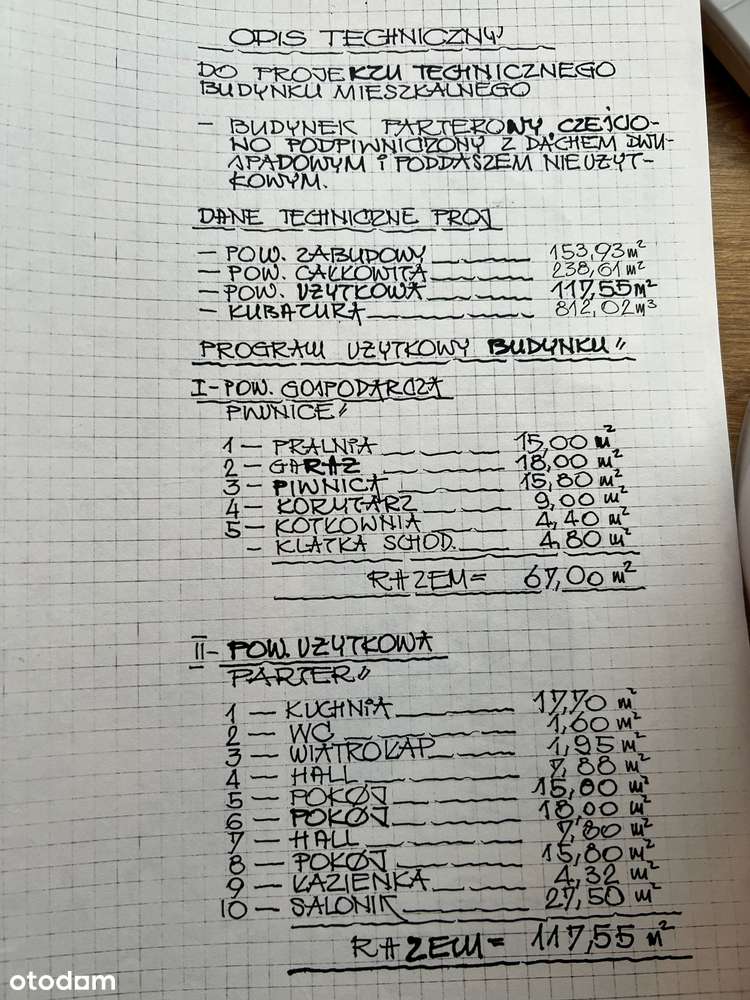 OPIS TECHNICZNY
DO PROJEKZU TECHNICZNEGO
BUDYNKU MIESZKALNEGO
– BUDYNEK PARTEROWY, CZĘŚCIO-
WO PODPIWNICZONY Z DACHEM DWU-
SPADOWYM I PODDASZEM NIEUZYT-
KOWYM.
DANE TECHNICZNE PROJ
– POW. ZABUDOWY 153,93 m²
– POW. CAŁKOWITA 238,61 m²
– POW. UŻYTKOWA 117,55 m²
– KUBATURA 812,02 m³
PROGRAM UŻYTKOWY BUDYNKU"
I – POW. GOSPODARCZA
PIWNICE"
1 – PRALNIA 15,00 m²
2 – GARAŻ 18,00 m²
3 – PIWNICA 15,80 m²
4 – KORYTARZ 9,00 m²
5 – KOTŁOWNIA 4,40 m²
– KLATKA SCHOD. 4,80 m²
RAZEM = 67,00 m²
II – POW. UŻYTKOWA
PARTER"
1 – KUCHNIA 17,70 m²
2 – WC 1,60 m²
3 – WIATROŁAP 1,95 m²
4 – HALL 7,88 m²
5 – POKÓJ 15,80 m²
6 – POKÓJ 18,00 m²
7 – HALL 7,80 m²
8 – POKÓJ 15,80 m²
9 – ŁAZIENKA 4,32 m²
10 – SALONIK 27,50 m²
RAZEM = 117,55 m²
otodom